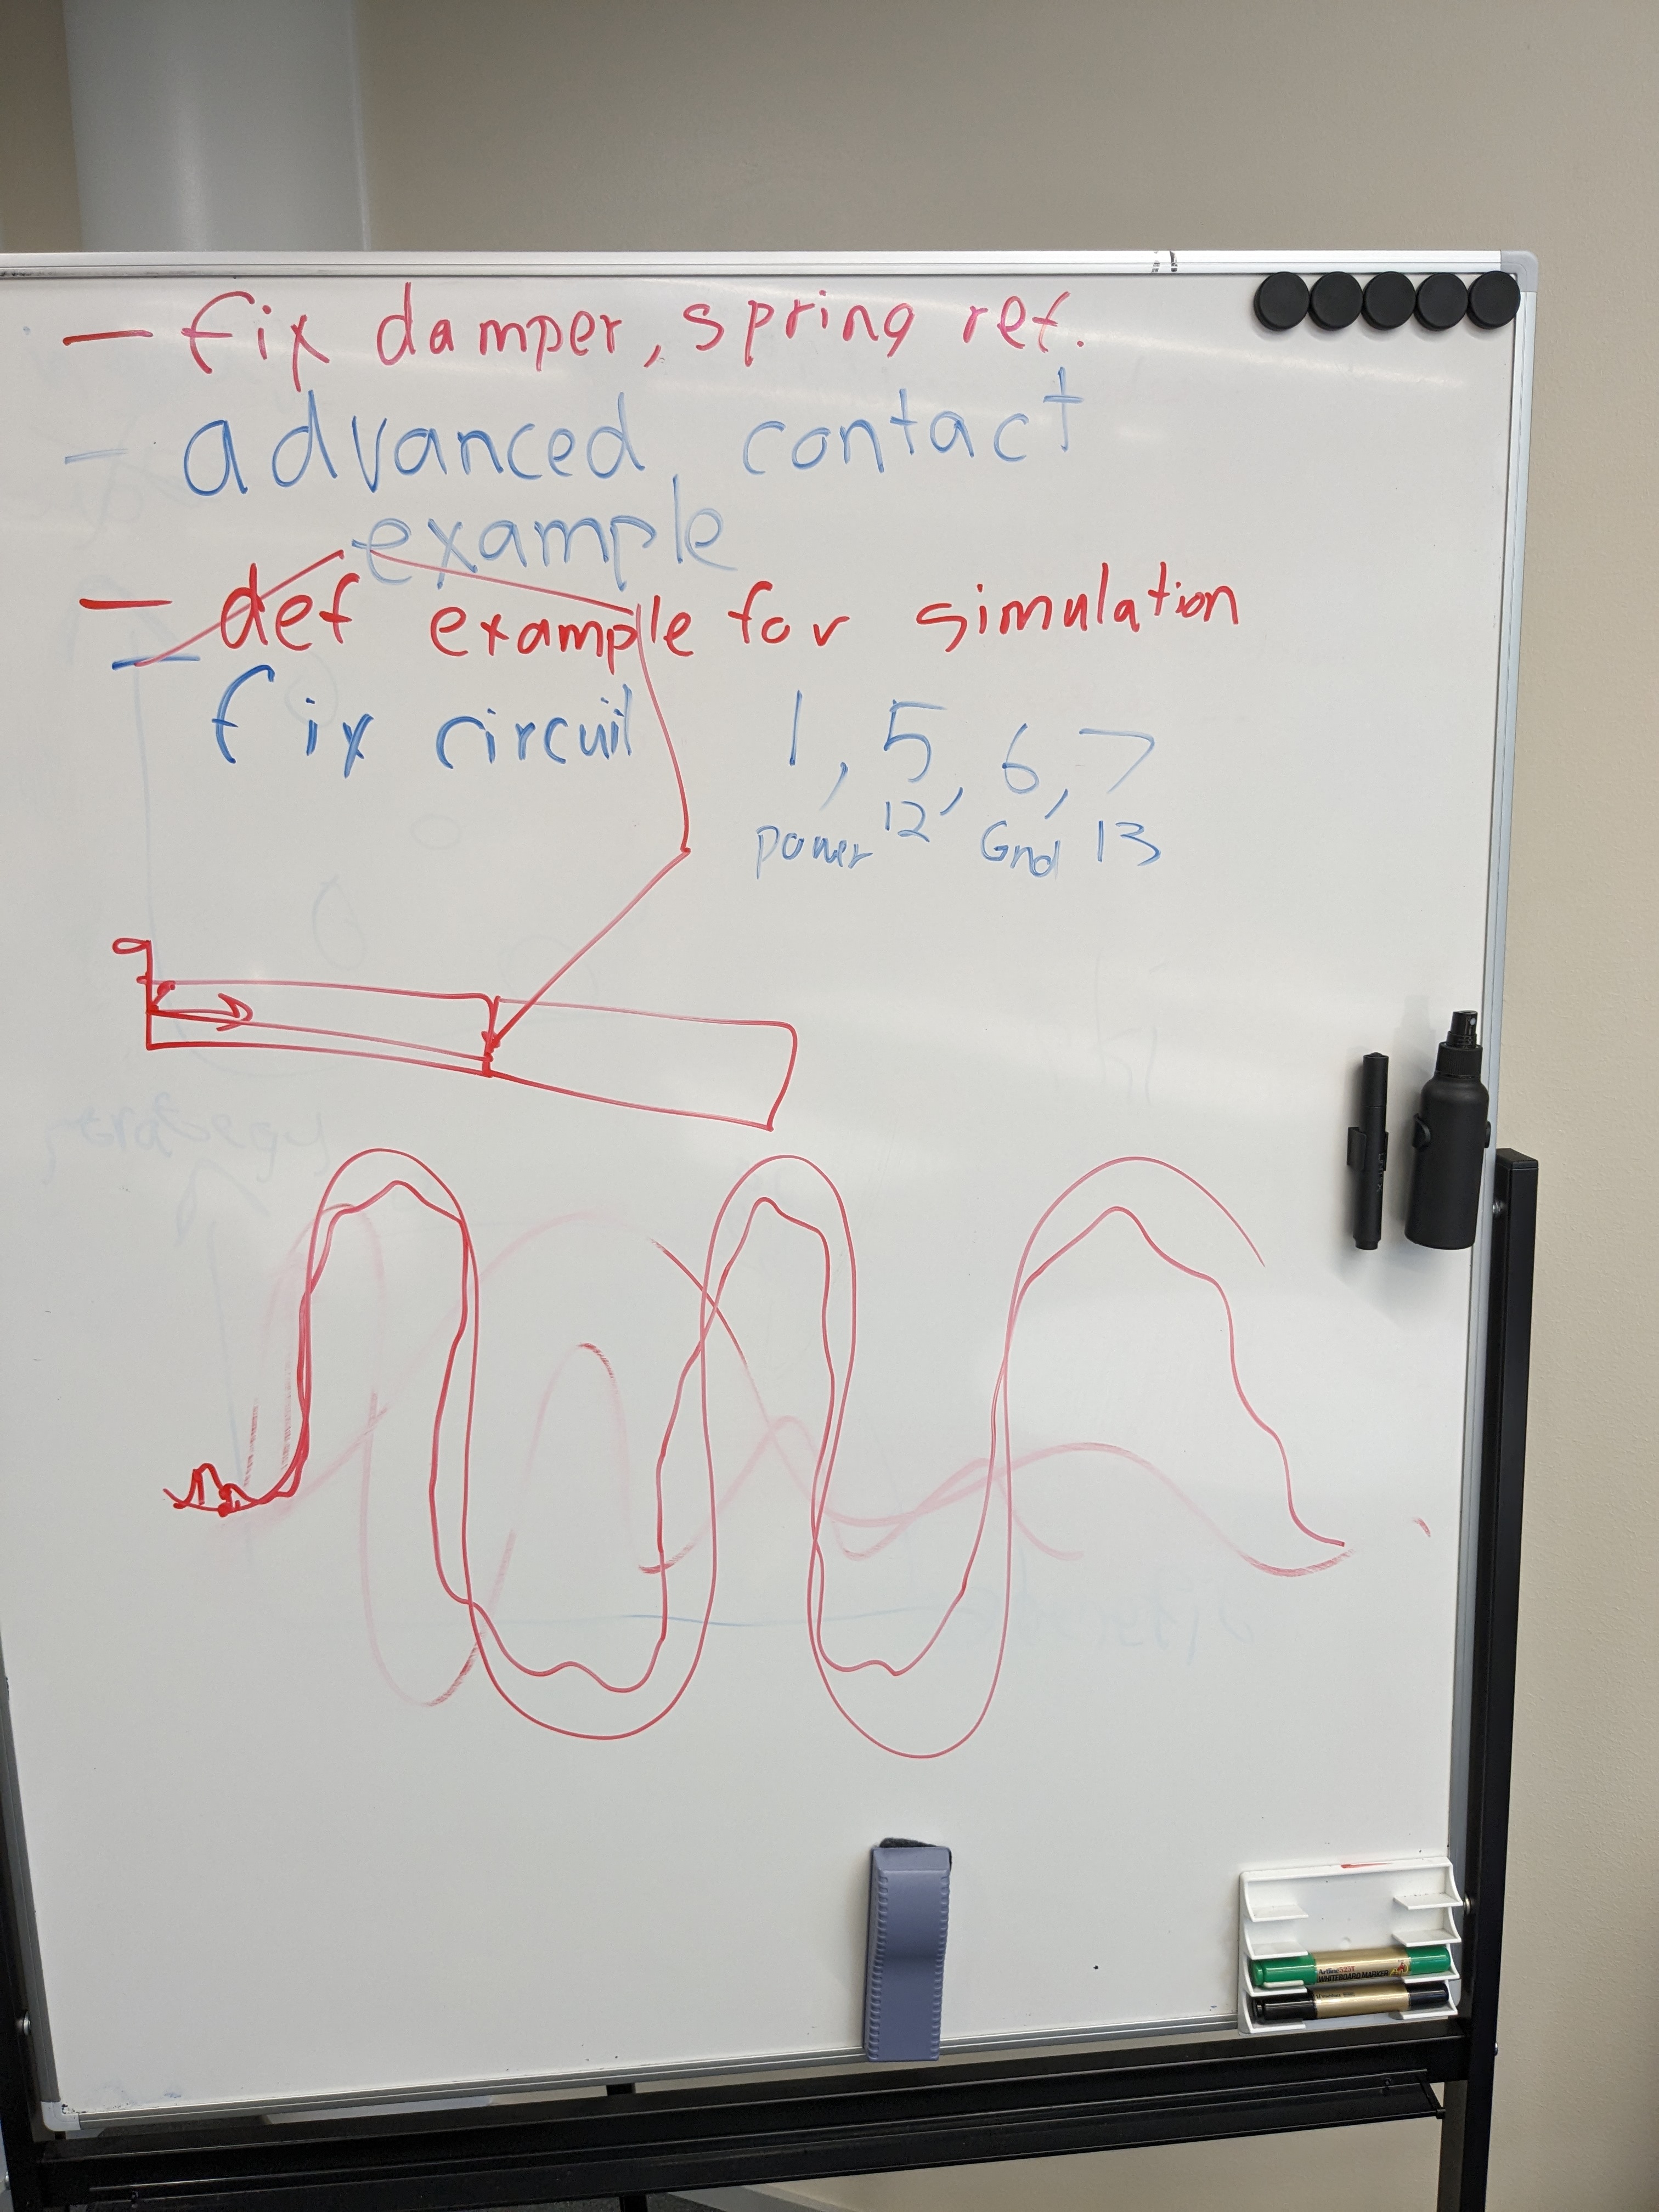 — fix damper, spring ref.
- advanced contact
example
— def example for simulation
— fix circuit 1, 5, 6, 7
power 12, Gnd 13
Artline
WHITEBOARD MARKER